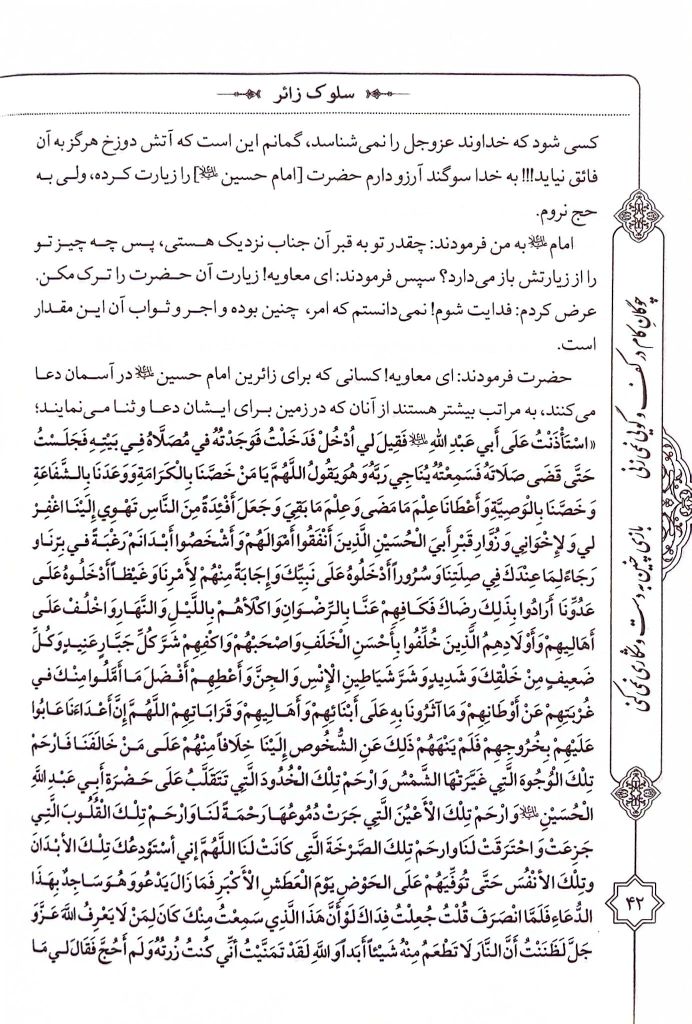 سلوک زائر
کسی شود که خداوند عزوجل را نمی‌شناسد، گمانم این است که آتش دوزخ هرگز به آن
فائق نیاید!!! به خدا سوگند آرزو دارم حضرت [امام حسین علیه‌السلام] را زیارت کرده، ولی به
حج نروم.
امام علیه‌السلام به من فرمودند: چقدر تو به قبر آن جناب نزدیک هستی، پس چه چیز تو
را از زیارتش باز می‌دارد؟ سپس فرمودند: ای معاویه! زیارت آن حضرت را ترک مکن.
عرض کردم: فدایت شوم! نمی‌دانستم که امر، چنین بوده و اجر و ثواب آن این مقدار
است.
حضرت فرمودند: ای معاویه! کسانی که برای زائرین امام حسین علیه‌السلام در آسمان دعا
می‌کنند، به مراتب بیشتر هستند از آنان که در زمین برای ایشان دعا و ثنا می‌نمایند؛
«اسْتَأْذَنْتُ عَلَى أَبِي عَبْدِ اللهِ علیه‌السلام فَقِيلَ لِي ادْخُلْ فَدَخَلْتُ فَوَجَدْتُهُ فِي مُصَلَّاهُ فِي بَيْتِهِ فَجَلَسْتُ
حَتَّى قَضَى صَلَاتَهُ فَسَمِعْتُهُ يُنَاجِي رَبَّهُ وَ هُوَ يَقُولُ اللَّهُمَّ يَا مَنْ خَصَّنَا بِالْكَرَامَةِ وَ وَعَدَنَا بِالشَّفَاعَةِ
وَ خَصَّنَا بِالْوَصِيَّةِ وَ أَعْطَانَا عِلْمَ مَا مَضَى وَ عِلْمَ مَا بَقِيَ وَ جَعَلَ أَفْئِدَةً مِنَ النَّاسِ تَهْوِي إِلَيْنَا اغْفِرْ
لِي وَ لِإِخْوَانِي وَ زُوَّارِ قَبْرِ أَبِيَ الْحُسَيْنِ الَّذِينَ أَنْفَقُوا أَمْوَالَهُمْ وَ أَشْخَصُوا أَبْدَانَهُمْ رَغْبَةً فِي بِرِّنَا وَ
رَجَاءً لِمَا عِنْدَكَ فِي صِلَتِنَا وَ سُرُوراً أَدْخَلُوهُ عَلَى نَبِيِّكَ وَ إِجَابَةً مِنْهُمْ لِأَمْرِنَا وَ غَيْظاً أَدْخَلُوهُ عَلَى
عَدُوِّنَا أَرَادُوا بِذَلِكَ رِضَاكَ فَكَافِهِمْ عَنَّا بِالرِّضْوَانِ وَ اكْلَأْهُمْ بِاللَّيْلِ وَ النَّهَارِ وَ اخْلُفْ عَلَى
أَهَالِيهِمْ وَ أَوْلَادِهِمُ الَّذِينَ خُلِّفُوا بِأَحْسَنِ الْخَلَفِ وَ اصْحَبْهُمْ وَ اكْفِهِمْ شَرَّ كُلِّ جَبَّارٍ عَنِيدٍ وَ كُلِّ
ضَعِيفٍ مِنْ خَلْقِكَ وَ شَدِيدٍ وَ شَرَّ شَيَاطِينِ الْإِنْسِ وَ الْجِنِّ وَ أَعْطِهِمْ أَفْضَلَ مَا أَمَّلُوا مِنْكَ فِي
غُرْبَتِهِمْ عَنْ أَوْطَانِهِمْ وَ مَا آثَرُونَا بِهِ عَلَى أَبْنَائِهِمْ وَ أَهَالِيهِمْ وَ قَرَابَاتِهِمْ اللَّهُمَّ إِنَّ أَعْدَاءَنَا عَابُوا
عَلَيْهِمْ بِخُرُوجِهِمْ فَلَمْ يَنْهَهُمْ ذَلِكَ عَنِ الشُّخُوصِ إِلَيْنَا خِلَافاً مِنْهُمْ عَلَى مَنْ خَالَفَنَا فَارْحَمْ
تِلْكَ الْوُجُوهَ الَّتِي غَيَّرَتْهَا الشَّمْسُ وَ ارْحَمْ تِلْكَ الْخُدُودَ الَّتِي تَتَقَلَّبُ عَلَى حَضْرَةِ أَبِي عَبْدِ اللَّهِ
الْحُسَيْنِ علیه‌السلام وَ ارْحَمْ تِلْكَ الْأَعْيُنَ الَّتِي جَرَتْ دُمُوعُهَا رَحْمَةً لَنَا وَ ارْحَمْ تِلْكَ الْقُلُوبَ الَّتِي
جَزِعَتْ وَ احْتَرَقَتْ لَنَا وارحَمْ تِلكَ الصَّرْخَةَ الَّتِي كَانَتْ لَنَا اللَّهُمَّ إِنِي أسْتَوْدِعُكَ تِلْكَ الأَبْدَانَ
وتِلْكَ الأنْفُسَ حَتَّى تُوَفِّيَهُمْ عَلَى الحَوْضِ يَوْمَ العَطَشِ الأكْبَرِ فَمَا زَالَ يَدْعُو وَ هُوَ سَاجِدٌ بِهَذَا
الدُّعَاءِ فَلَمَّا انْصَرَفَ قُلْتُ جُعِلْتُ فِدَاكَ لَوْ أَنَّ هَذَا الَّذِي سَمِعْتُ مِنْكَ كَانَ لِمَنْ لَا يَعْرِفُ اللهَ عَزَّ وَ
جَلَّ لَظَنَنْتُ أَنَّ النَّارَ لَا تَطْعَمُ مِنْهُ شَيْئاً أَبَداً وَ اللَّهِ لَقَدْ تَمَنَّيْتُ أَنِّي كُنْتُ زُرتُهُ وَلَم أحُجَّ فَقَالَ لِي مَا
چوگان کام در کف و گویی نمی زنی
بازی چنین به دست و شکاری نمی کنی
۴۲